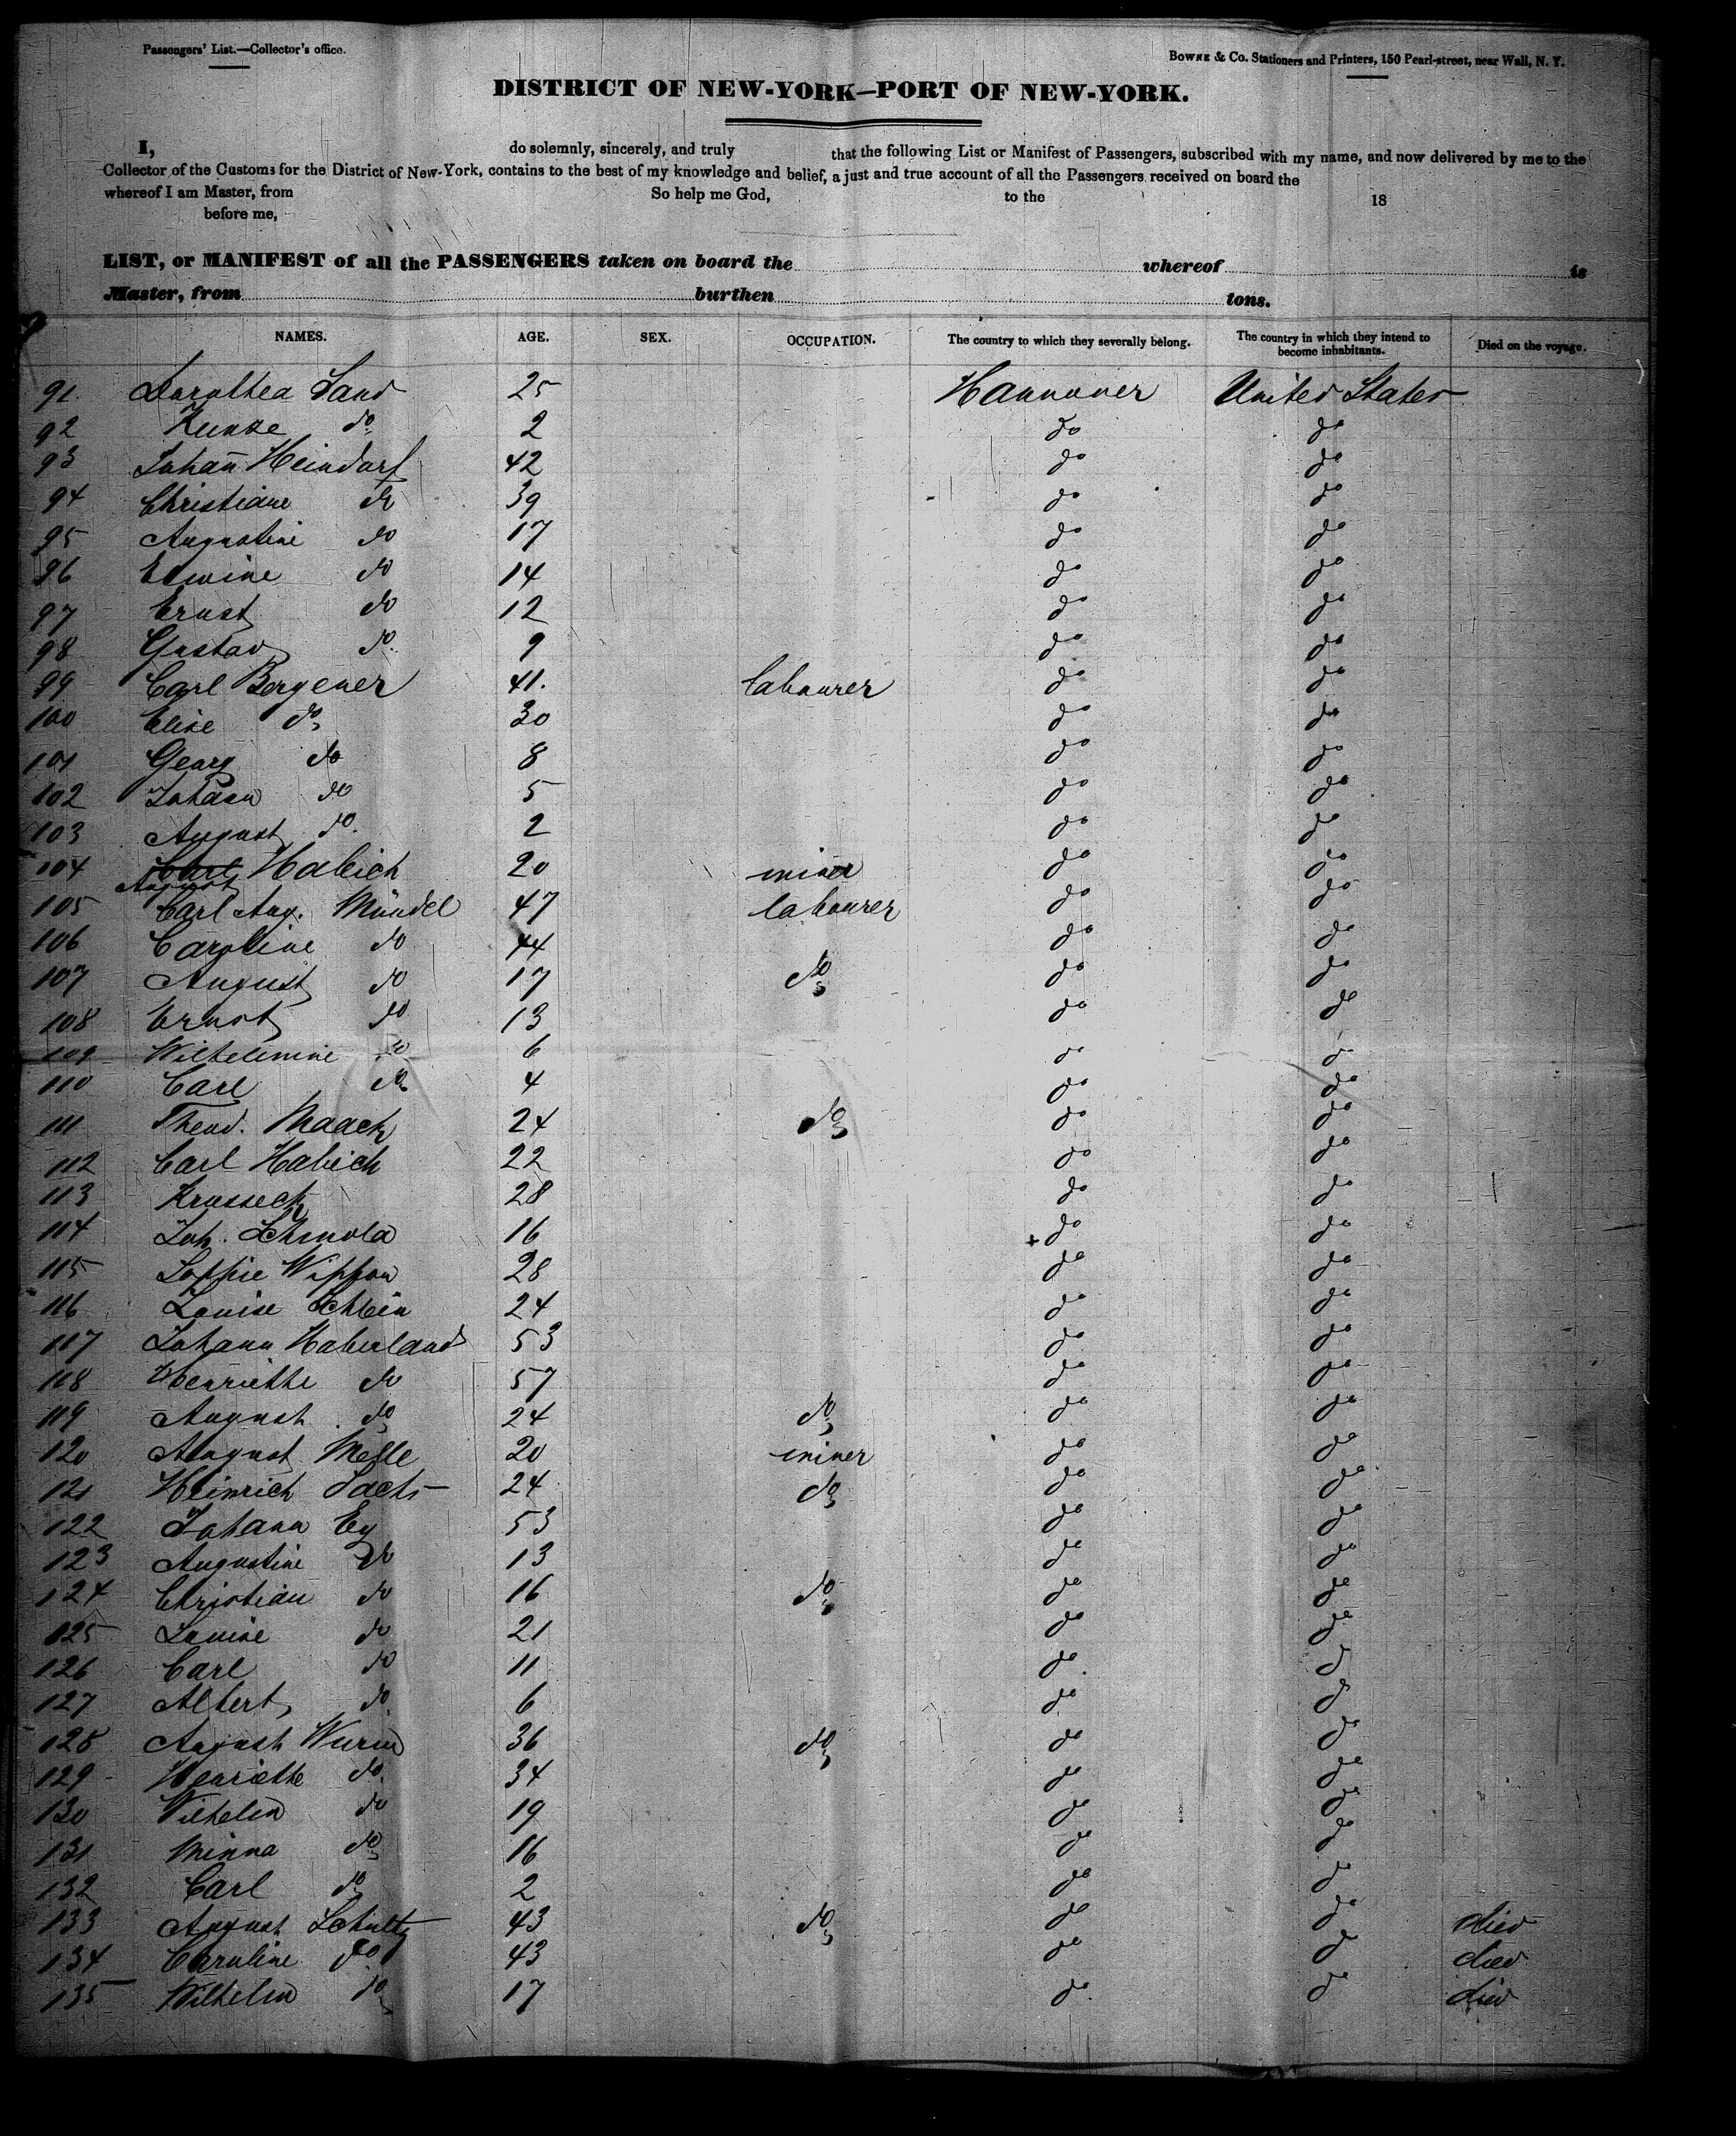 Passengers' List.—Collector's office.
Bowne & Co. Stationers and Printers, 150 Pearl-street, near Wall, N. Y.
DISTRICT OF NEW-YORK—PORT OF NEW-YORK.
I, do solemnly, sincerely, and truly that the following List or Manifest of Passengers, subscribed with my name, and now delivered by me to the
Collector of the Customs for the District of New-York, contains to the best of my knowledge and belief, a just and true account of all the Passengers received on board the
whereof I am Master, from So help me God, to the 18
before me,
LIST, or MANIFEST of all the PASSENGERS taken on board the whereof is
Master, from burthen tons.
NAMES. AGE. SEX. OCCUPATION. The country to which they severally belong. The country in which they intend to become inhabitants. Died on the voyage.
91. Dorothea Sand 25 Hannover United States
92 Kunze do 2 do do
93 Johan̄ Heindorf 42 do do
94 Christiane do 39 do do
95 Augustine do 17 do do
96 Erwine do 14 do do
97 Ernst do 12 do do
98 Gustav do. 9 do do
99 Carl Bergener 41. labourer do do
100 Elise do 30 do do
101 Georg do 8 do do
102 Johann do 5 do do
103 August do. 2 do do
104 Carl August Habich 20 miner do do
105 Carl Aug. Mündel 47 labourer do do
106 Caroline do 44 do do
107 August do 17 do do do
108 Ernst do 13 do do
109 Wilhelmine do 6 do do
110 Carl do 4 do do
111 Theod. Maack 24 do do do
112 Carl Habich 22 do do
113 Krusseck 28 do do
114 Joh. 16 do do
115 Sophie 28 do do
116 Louise Schlein 24 do do
117 Johann Haberland 53 do do
118 Henriette do 57 do do
119 August do 24 do do do
120 August 20 miner do do
121 Heinrich Sachs 24 do do do
122 Johann Ey 53 do do
123 Augustine do 13 do do
124 Christian do 16 do do do
125 Louise do 21 do do
126 Carl do 11 do do
127 Albert do 6 do do
128 August Wurm 36 do do do
129 Henriette do. 34 do do
130 Wilhelm do 19 do do
131 Minna do 16 do do
132 Carl do 2 do do
133 August Schultz 43 do do do died
134 Caroline do 43 do do died
135 Wilhelm do 17 do do died